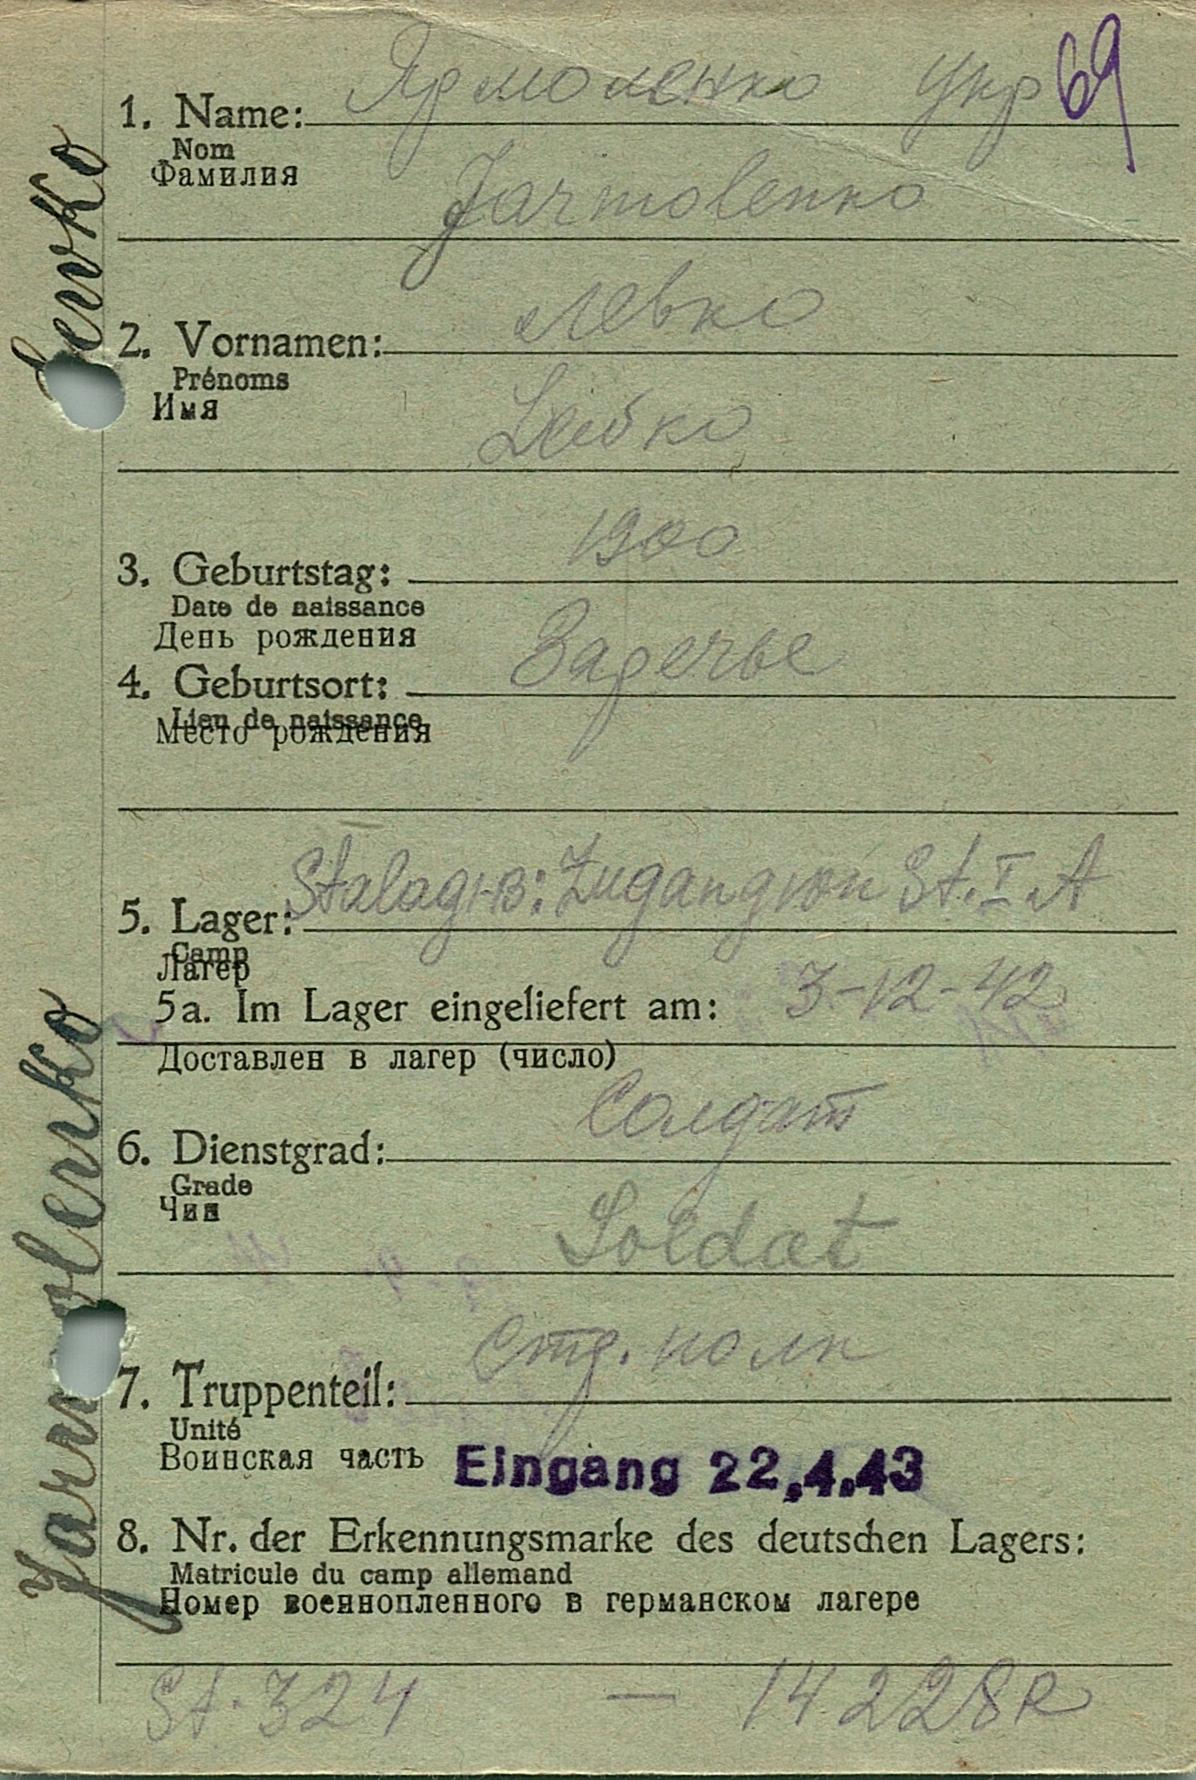 Ярмоленко укр 69
1. Name:
Nom
Фамилия
Jarmolenko
Левко
2. Vornamen:
Prénoms
Имя
Lewko
1900
3. Geburtstag:
Date de naissance
День рождения
Заречье
4. Geburtsort:
Lieu de naissance
Место рождения
Stalag I-B: Zugang von St. I A
5. Lager:
Camp
Лагерь
5a. Im Lager eingeliefert am: 3-12-42
Доставлен в лагер (число)
Солдат
6. Dienstgrad:
Grade
Чин
Soldat
полк
7. Truppenteil:
Unité
Воинская часть
Eingang 22.4.43
8. Nr. der Erkennungsmarke des deutschen Lagers:
Matricule du camp allemand
Номер военнопленного в германском лагере
St. 324 — 14228 R
Jarmolenko Levko